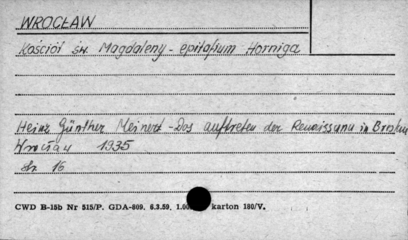 WROCŁAW
Kościół św. Magdaleny - epitafium Horniga
Heinz Günther Meinert - Das auftreten der Renaissana in Breslau
Wrocław 1935
str. 16
CWD B-15b Nr 515/P. GDA-809. 6.3.59. 1.00 karton 180/V.